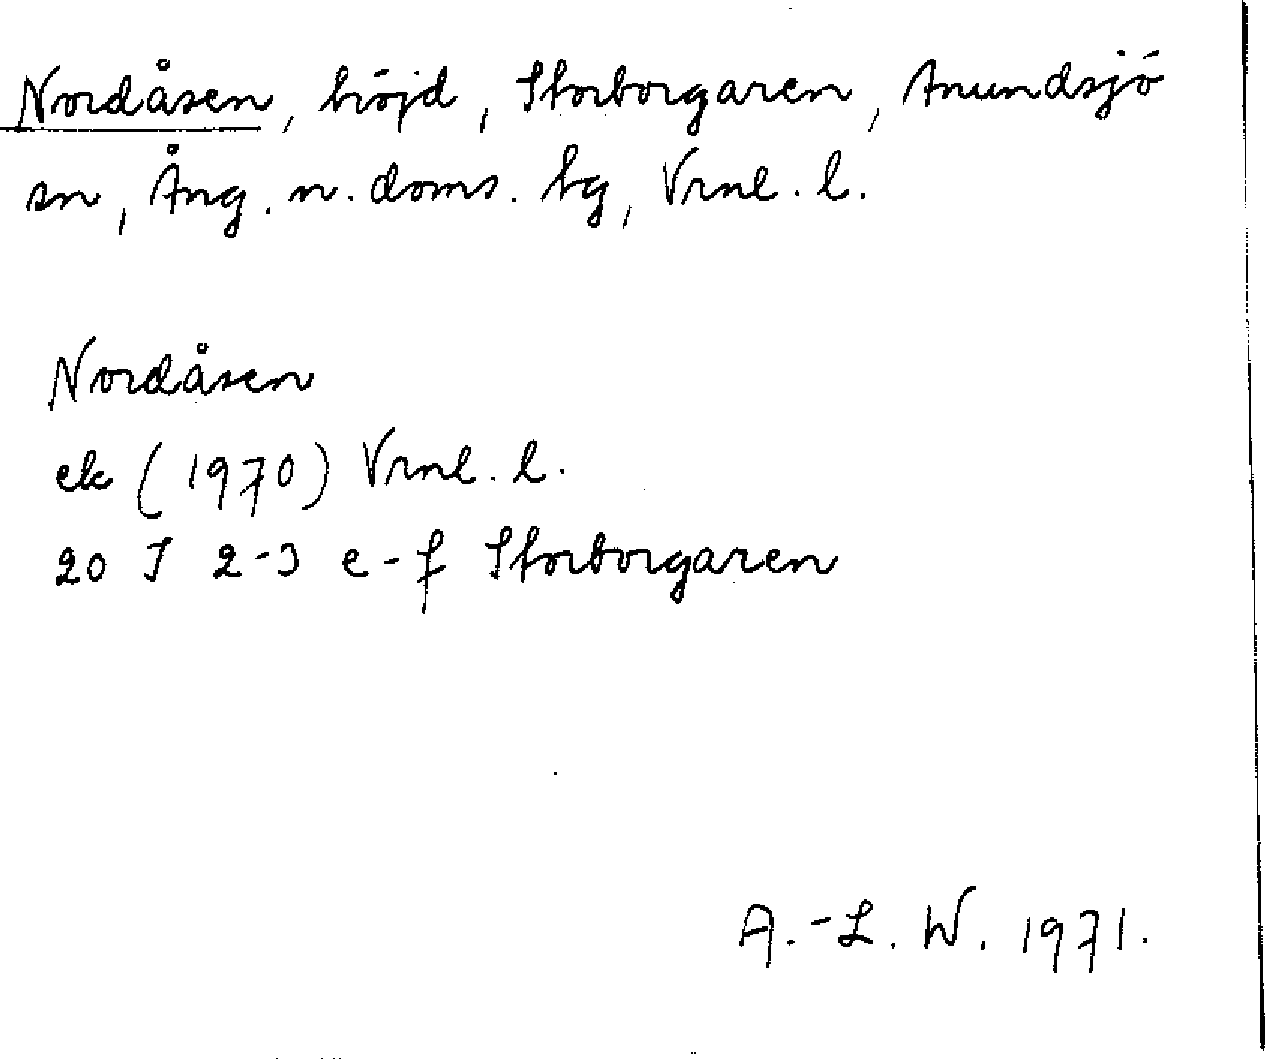 Nordåsen, höjd, Storborgaren, Anundsjö
sn, Ång. n. doms. tg, Vrnl. l.
Nordåsen
ek (1970) Vrnl. l.
20 J 2-3 e-f Storborgaren
A.-L. W. 1971.